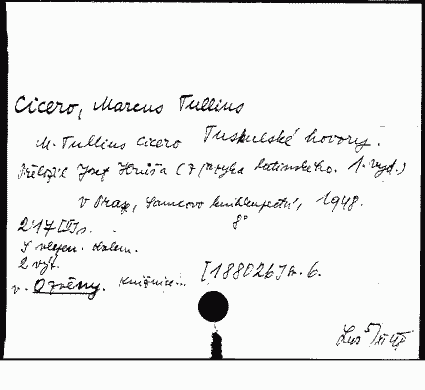 Cicero, Marcus Tullius
M. Tullius Cicero Tuskulské hovory.
Přeložil Josef Hruša (z jazyka latinského. 1. vyd.)
v Praze, knihkupectví, 1948.
8°
217 [II] s.
2 výt.
v. Ozvěny. Knižnice... [188026] sv. 6.